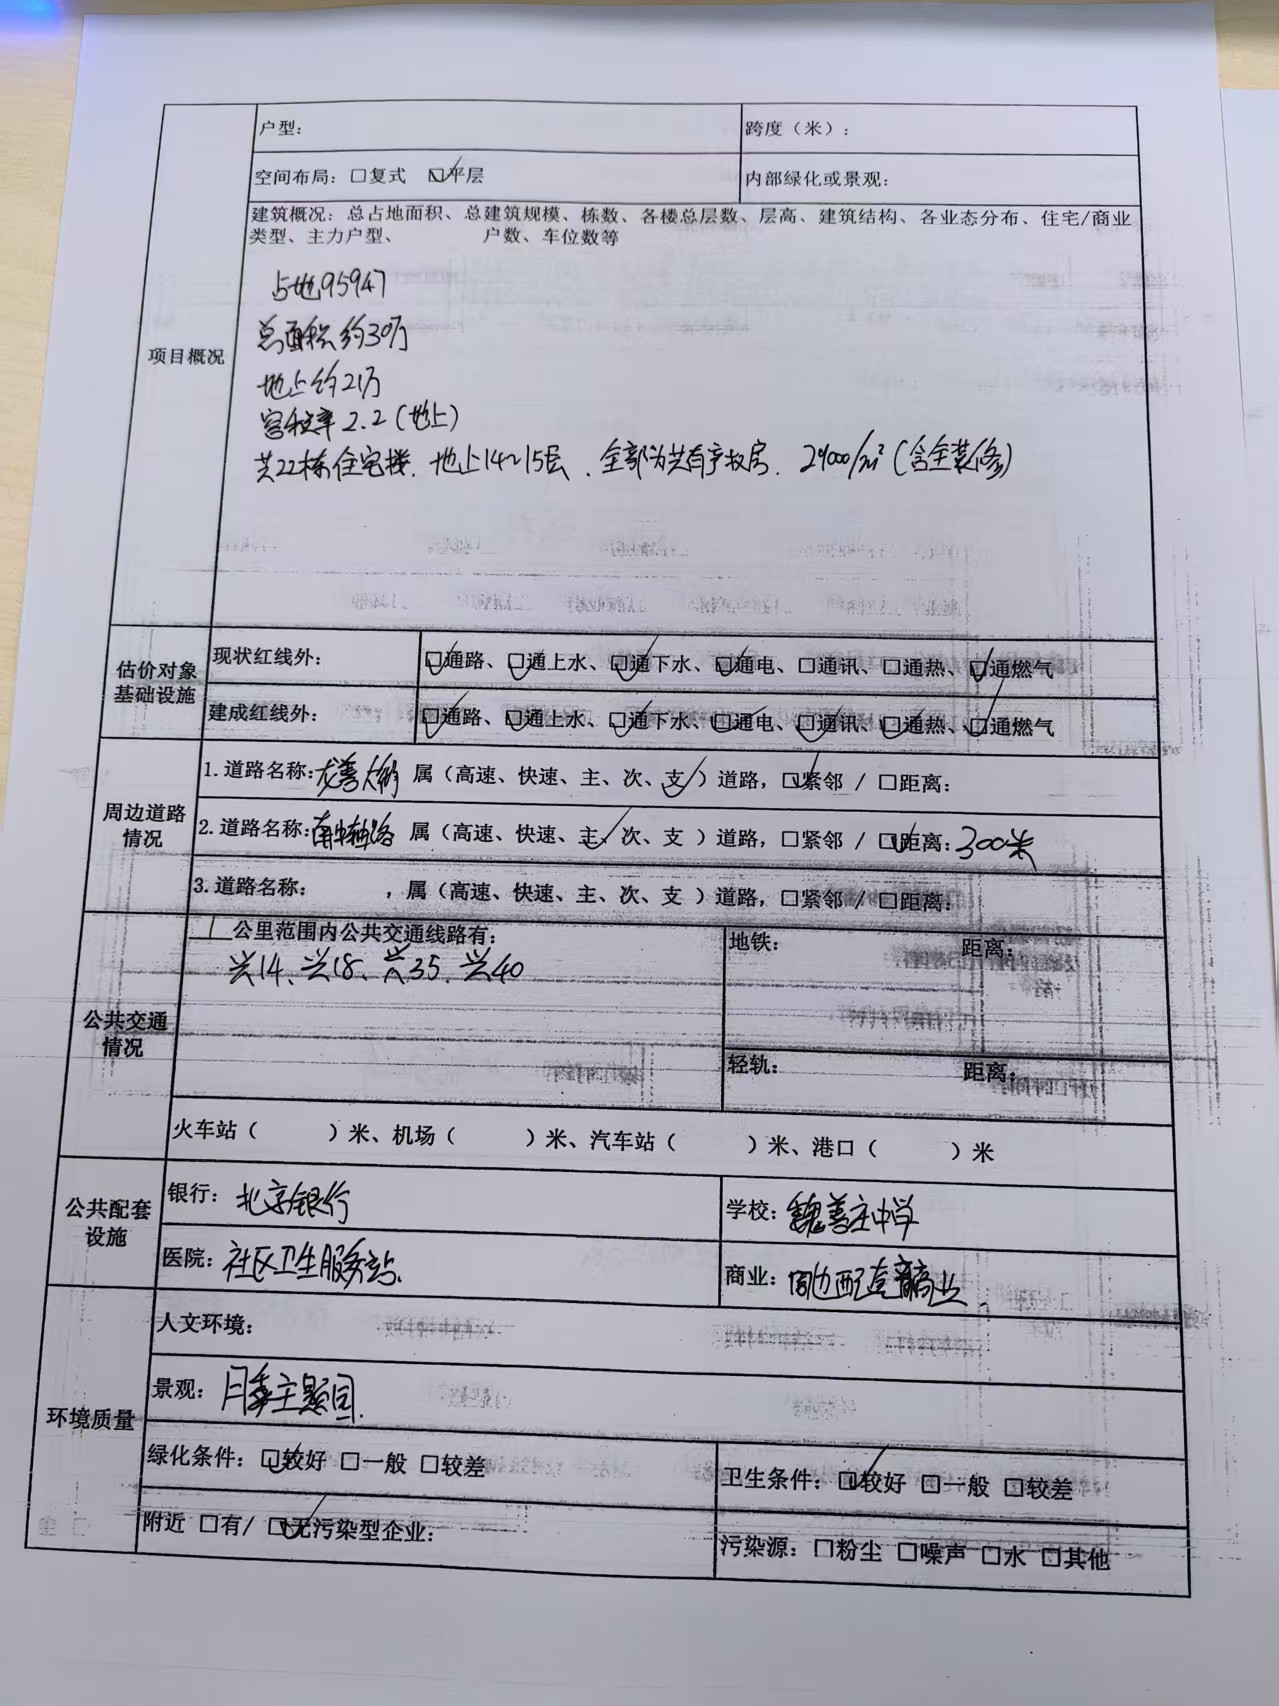 户型：
跨度（米）：
空间布局：□复式 ☑平层
内部绿化或景观：
建筑概况：总占地面积、总建筑规模、栋数、各楼总层数、层高、建筑结构、各业态分布、住宅/商业
类型、主力户型、 户数、车位数等
项目概况
占地95947
总面积约30万
地上约21万
容积率2.2(地上)
共22栋住宅楼、地上14~15层、全部为共有产权房、29000/m²(含全装修)
估价对象
基础设施
现状红线外：
☑通路、☑通上水、☑通下水、☑通电、□通讯、□通热、☑通燃气
建成红线外：
☑通路、☑通上水、☑通下水、☑通电、☑通讯、☑通热、☑通燃气
周边道路
情况
1.道路名称：龙善大街 属（高速、快速、主、次、支✓）道路，☑紧邻 / □距离：
2.道路名称：南中轴路 属（高速、快速、主✓、次、支 ）道路，□紧邻 / ☑距离：300米
3.道路名称： ，属（高速、快速、主、次、支 ）道路，□紧邻 / □距离：
公共交通
情况
1公里范围内公共交通线路有：
兴14、兴18、兴35、兴40
地铁： 距离：
轻轨： 距离：
火车站（ ）米、机场（ ）米、汽车站（ ）米、港口（ ）米
公共配套
设施
银行：北京银行
学校：魏善庄中学
医院：社区卫生服务站
商业：周边配套商业
环境质量
人文环境：
景观：月季主题园
绿化条件：☑较好 □一般 □较差
卫生条件：☑较好 □一般 □较差
附近 □有/ ☑无污染型企业：
污染源：□粉尘 □噪声 □水 □其他